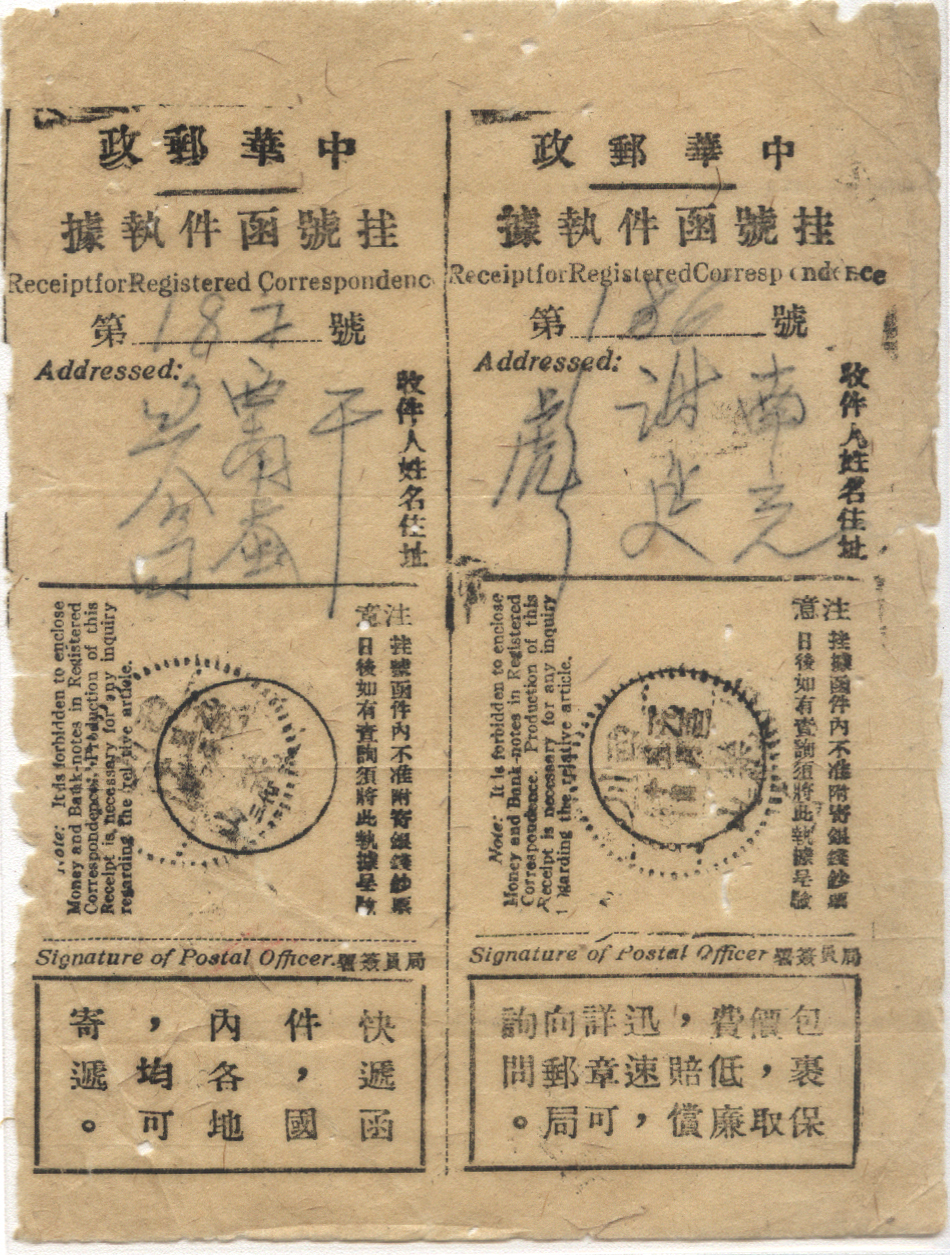 中華郵政
挂號函件執據
Receipt for Registered Correspondence
第 號
Addressed:
收件人姓名住址
南充
注意
挂號函件內不准附寄銀錢鈔票
日後如有查詢須將此執據呈驗
Note: It is forbidden to enclose
Money and Bank-notes in Registered
Correspondence. Production of this
Receipt is necessary for any inquiry
regarding the relative article.
Signature of Postal Officer. 局員簽署
包裹保
價，取
費低廉
，賠償
迅速，
詳章可
向郵局
詢問。
中華郵政
挂號函件執據
Receipt for Registered Correspondence
第 182 號
Addressed:
收件人姓名住址
注意
挂號函件內不准附寄銀錢鈔票
日後如有查詢須將此執據呈驗
Note: It is forbidden to enclose
Money and Bank-notes in Registered
Correspondences. Production of this
Receipt is necessary for any inquiry
regarding the relative article.
Signature of Postal Officer. 局員簽署
快遞函
件，國
內各地
，均可
寄遞。